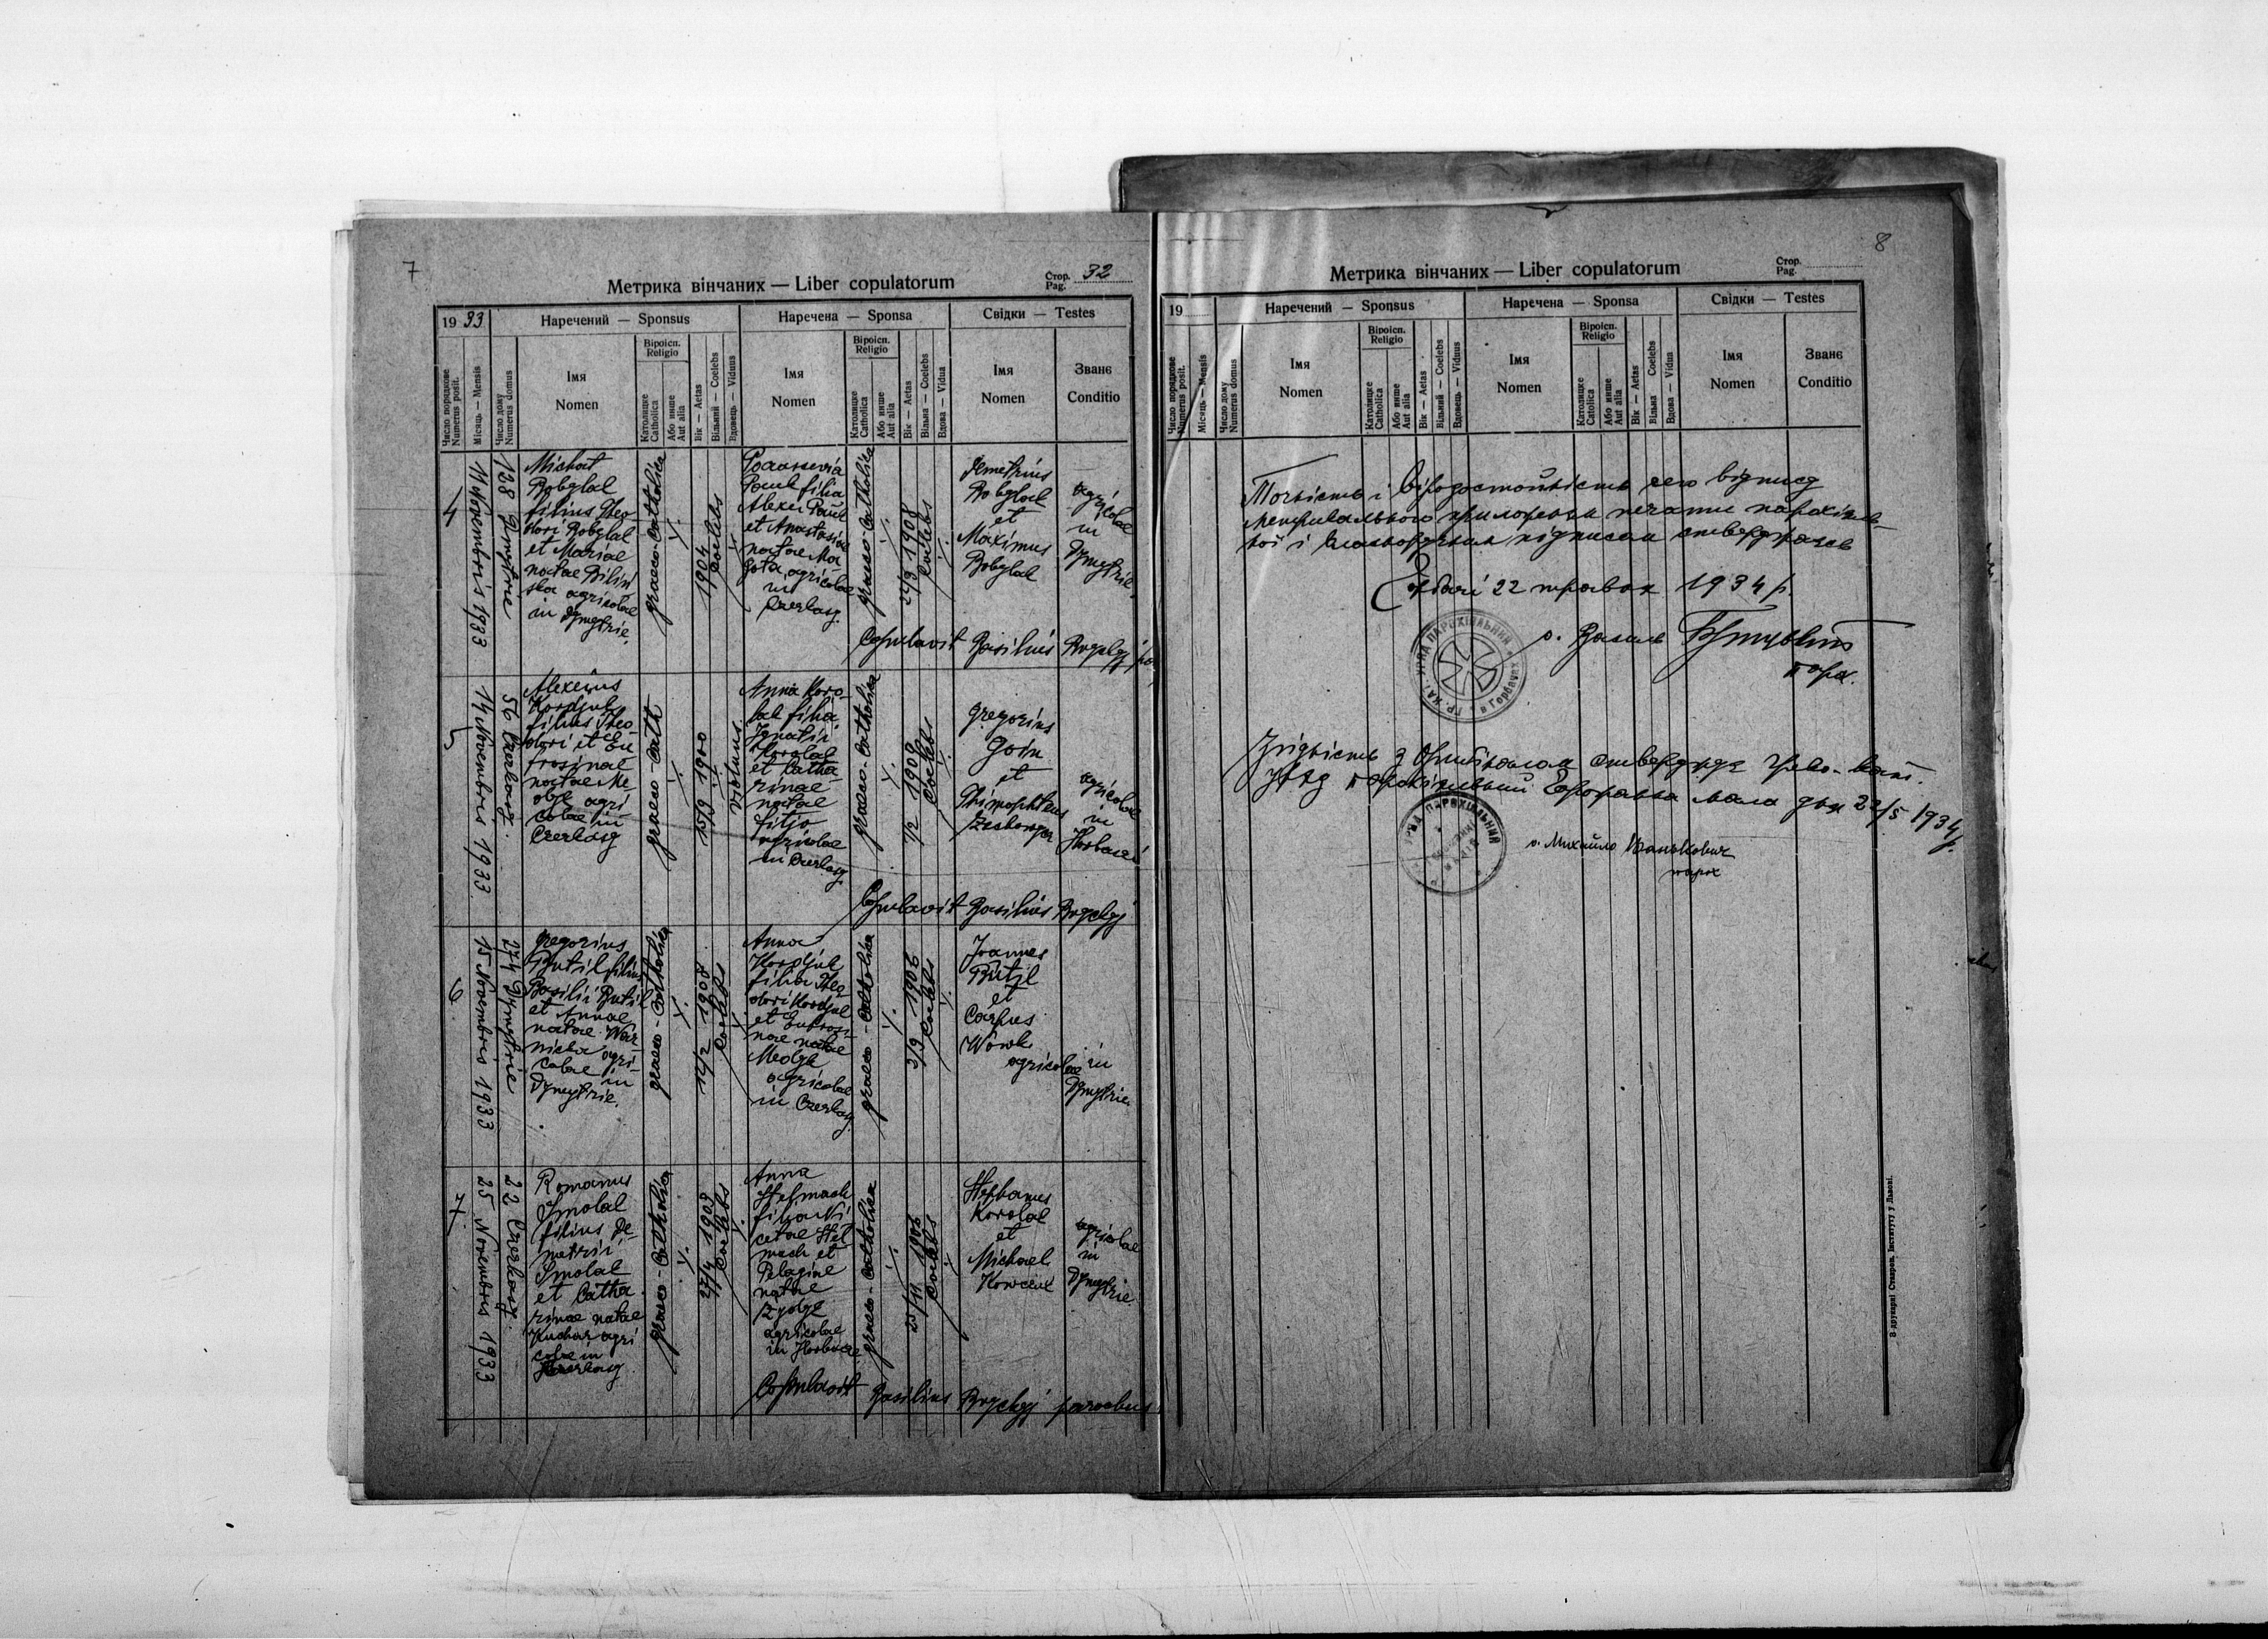 7
Метрика вінчаних — Liber copulatorum
Стор.
Pag. 32
19 33
Наречений — Sponsus
Наречена — Sponsa
Свідки — Testes
Число порядкове
Numerus posit.
Місяць — Mensis
Число дому
Numerus domus
Імя
Nomen
Віроісп.
Religio
Католицке
Catholica
Або инше
Aut alia
Вік — Aetas
Вільний — Coelebs
Вдовець — Viduus
Імя
Nomen
Віроісп.
Religio
Католицке
Catholica
Або инше
Aut alia
Вік — Aetas
Вільна — Coelebs
Вдова — Vidua
Імя
Nomen
Званє
Conditio
4
11 Novembris 1933
138 Dmytrie
Michael
Bobylal
filius Theo
dori Bobylal
et Mariae
natae Bilin
ska agricolae
in Dmytrie.
graeco-catholica
1904
Coelebs
Parascevia
Pauk filia
Alexii Pauk
et Anastasiae
natae Ma
gota agricolae
in
Czerkasy
graeco-catholica
24/9 1908
Coelebs
Demetrius
Bobylal
et
Maximus
Bobylal
agricolae
in
Dmytrie.
Copulavit Basilius Brychyj
5
14 Novembris 1933
56 Czerkasy.
Alexeius
Kordjuk
filius Theo
dori et Eu
frosinae
natae Me
dyk agri
colae in
Czerkasy
graeco-cath
15/9 1900
viduus
Anna Koro-
lal filia
Ignatii
Korolal
et Catha
rinae
natae
Fitjo
agricolae
in Czerkasy
graeco-catholica
7/2 1908
Coelebs
Gregorius
Goin
et
Thimophteus
agricolae
in
Copulavit Basilius Brychyj
6
15 Novembris 1933
274 Dmytrie
Gregorius
Butil filius
Basilii Butil
et Annae
natae War-
nicka agri-
colae in
Dmytrie.
graeco-catholica
14/2 1908
Coelebs
Anna
Kordjuk
filia Theo
dori Kordjuk
et Eufrosi
nae natae
Medyk
agricolae
in Czerkasy
graeco-catholica
3/9 1906
Coelebs
Joannes
Butyl
et
Carpus
Wowk
agricolae in
Dmytrie.
7
25 Novembris 1933
22 Czerkasy.
Romanus
Smolal
filius De-
metrii
Smolal
et Catha
rinae natae
Kuchar agri
colae in
Czerkasy
graeco-catholica
27/4 1908
Coelebs
Anna
Stelmach
filia Ni
cetae Stel
mach et
Pelagiae
natae
Zydyk
agricolae
in
graeco-catholica
25/11 1908
Coelebs
Stephanus
Korolal
et
Michael
agricolae
in
Dmytrie.
Copulavit Basilius Brychyj parochus
8
Метрика вінчаних — Liber copulatorum
Стор.
Pag.
19
Наречений — Sponsus
Наречена — Sponsa
Свідки — Testes
Число порядкове
Numerus posit.
Місяць — Mensis
Число дому
Numerus domus
Імя
Nomen
Віроісп.
Religio
Католицке
Catholica
Або инше
Aut alia
Вік — Aetas
Вільний — Coelebs
Вдовець — Viduus
Імя
Nomen
Віроісп.
Religio
Католицке
Catholica
Або инше
Aut alia
Вік — Aetas
Вільна Coelebs
Вдова — Vidua
Імя
Nomen
Званє
Conditio
Точність і вірогостойність сего відпису
метрикального приложеням печати парохіяль-
ної і власноручним підписом стверджаєсь
22 травня 1934 р.
о. Василь
парох.
Згідність з оригіналом стверджує Греко-кат.
Уряд парохіяльний дня 22/5 1934 р.
о. Михайло
парох
З друкарні Ставроп. Інституту у Львові.